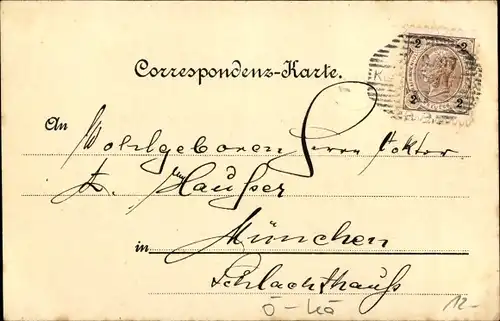 2 2
K
Correspondenz-Karte.
2 2
An Wohlgeboren Herrn Doktor
Dr. Hausser
in München
Schlachthauß
ö-kö
12.-